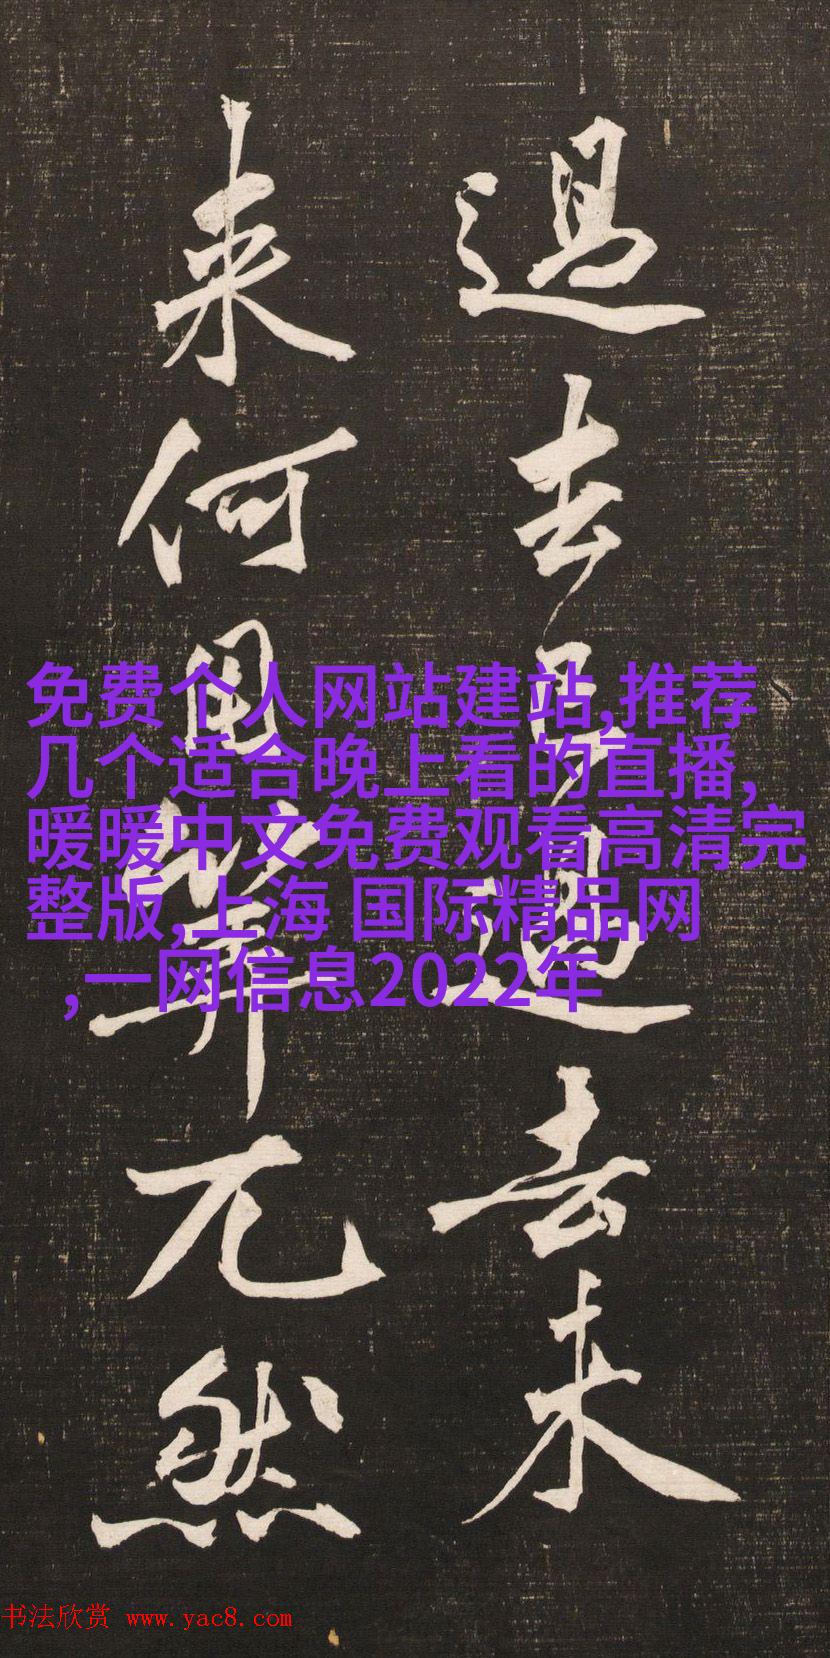 過去事已過去未
来何用筭兀然
免费个人网站建站,推荐
几个适合晚上看的直播,
暖暖中文免费观看高清完
整版,上海 国际精品网
,一网信息2022年
书法欣赏 www.yac8.com